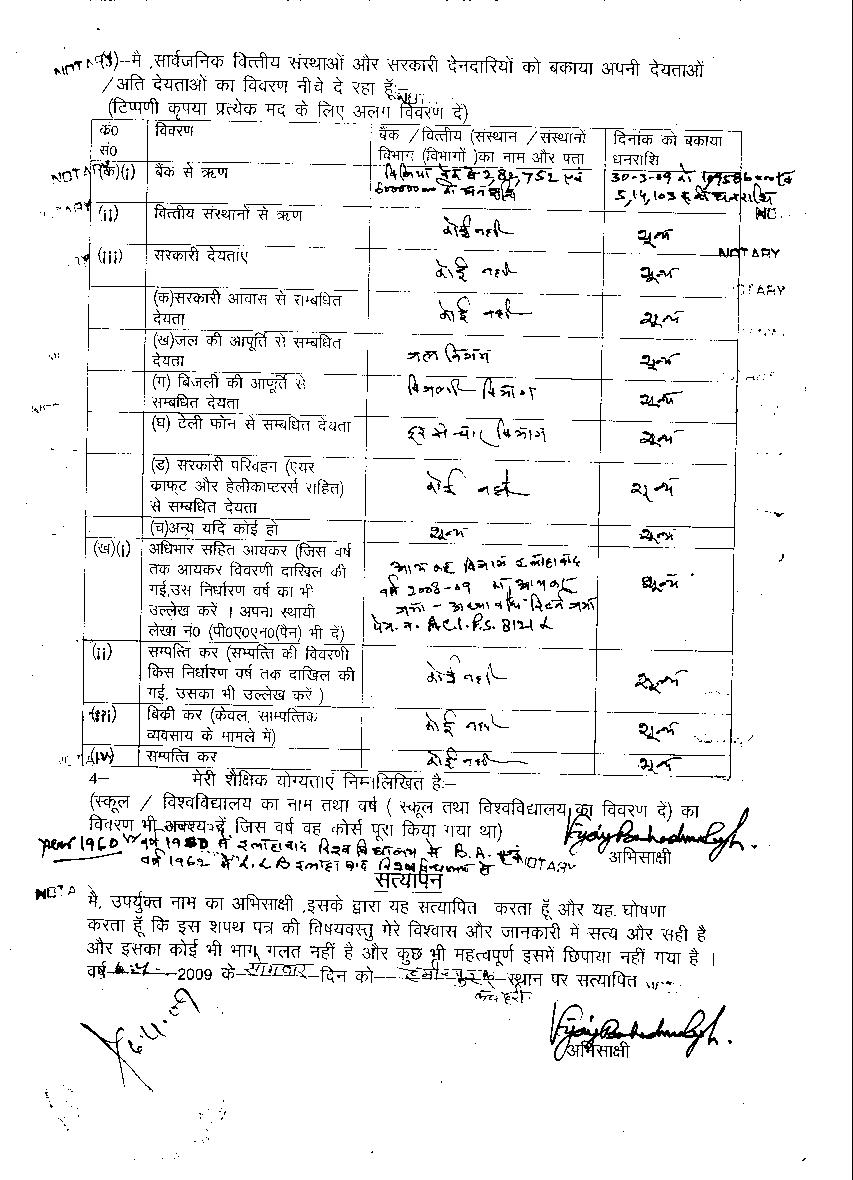 NOTARY(3)–मै ,सार्वजनिक वित्तीय संस्थाओं और सरकारी देनदारियों को बकाया अपनी देयताओं
/अति देयताओं का विवरण नीचे दे रहा हूँ:–
(टिप्पणी कृपया प्रत्येक मद के लिए अलग विवरण दें)
कं0 सं0 विवरण बैंक /वित्तीय (संस्थान /संस्थानों विभाग (विभागों )का नाम और पता दिनांक को बकाया धनराशि
NOTARY
(क)(i) बैंक से ऋण 2,82,752 एवं 600000 30-3-09 को 5,14,103
(ii) वित्तीय संस्थानों से ऋण कोई नही शून्य
(iii) सरकारी देयताए कोई नही शून्य
NOTARY
(क)सरकारी आवास से सम्बधित
देयता कोई नही शून्य
(ख)जल की आपूर्ति से सम्बधित
देयता जल निगम शून्य
(ग) बिजली की आपूर्ति से
सम्बधित देयता बिजली विभाग शून्य
(घ) टेली फोन से सम्बधित देयता दूर संचार विभाग शून्य
(ड) सरकारी परिवहन (एयर
काफ्ट और हेलीकाप्टरर्स सहित)
से सम्बधित देयता कोई नही शून्य
(च)अन्य यदि कोई हो शून्य शून्य
(ख)(i) अधिभार सहित आयकर (जिस वर्ष
तक आयकर विवरणी दाखिल की
गई,उस निर्धारण वर्ष का भी
उल्लेख करें । अपना स्थायी
लेखा नं0 (पी0ए0एन0(पैन) भी दें)
आय कर विभाग इलाहाबाद
वर्ष 2008-09 आय कर
शून्य
(ii) सम्पत्ति कर (सम्पत्ति की विवरणी
किस निर्धारण वर्ष तक दाखिल की
गई, उसका भी उल्लेख करें ) कोई नही शून्य
(iii) बिकी कर (केवल, साम्पत्तिक
व्यवसाय के मामले में) कोई नही शून्य
(iv) सम्पत्ति कर कोई नही शून्य
4– मेरी शैक्षिक योग्यताएं निम्नलिखित है:–
(स्कूल / विश्वविद्यालय का नाम तथा वर्ष ( स्कूल तथा विश्वविद्यालय का विवरण दें) का
विवरण भी अवश्य दें जिस वर्ष वह कोर्स पूरा किया गया था)
Vijay Bahadur Singh.
अभिसाक्षी
year 1960 में इलाहाबाद विश्व विद्यालय से B.A. एवं
वर्ष 1962 में L.L.B इलाहाबाद विश्व विद्यालय से
NOTARY
सत्यापन
मै, उपर्युक्त नाम का अभिसाक्षी ,इसके द्वारा यह सत्यापित करता हूँ और यह घोषणा
करता हूँ कि इस शपथ पत्र की विषयवस्तु मेरे विश्वास और जानकारी में सत्य और सही है
और इसका कोई भी भाग गलत नहीं है और कुछ भी महत्वपूर्ण इसमें छिपाया नहीं गया है ।
वर्ष 2009 के सोमवार दिन को हमीरपुर स्थान पर सत्यापित
कचहरी
Vijay Bahadur Singh.
अभिसाक्षी